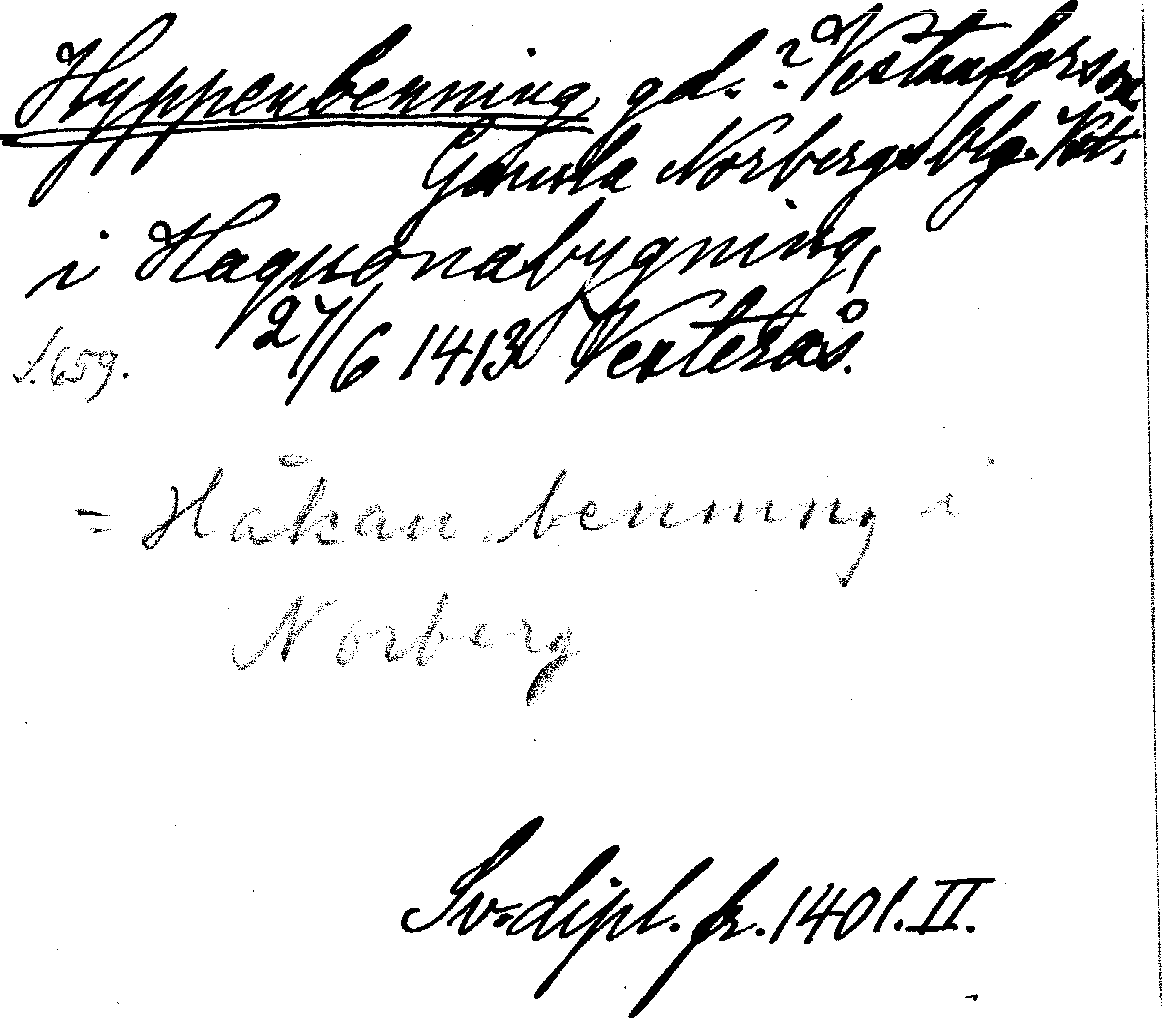 Hyppenbenning, gd. ? Västanfors sn
Gamla Norbergs blg. Vstm.
i Haquonabygning,
27/6 1413 Vesterås.
S. 659.
= Håkan benning i
Norberg
Sv. dipl. fr. 1401. II.